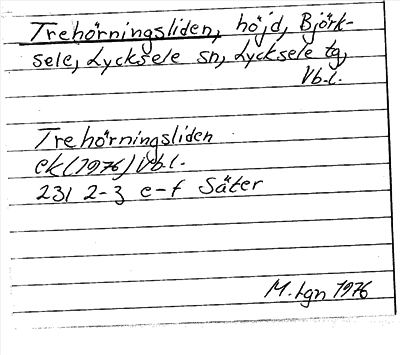 Trehörningsliden, höjd, Björk-
sele, Lycksele sn, Lycksele tg,
Vb.l.
Trehörningsliden
ek (1976) Vb.l.
231 2-3 e-f Säter
M. Lgn 1976